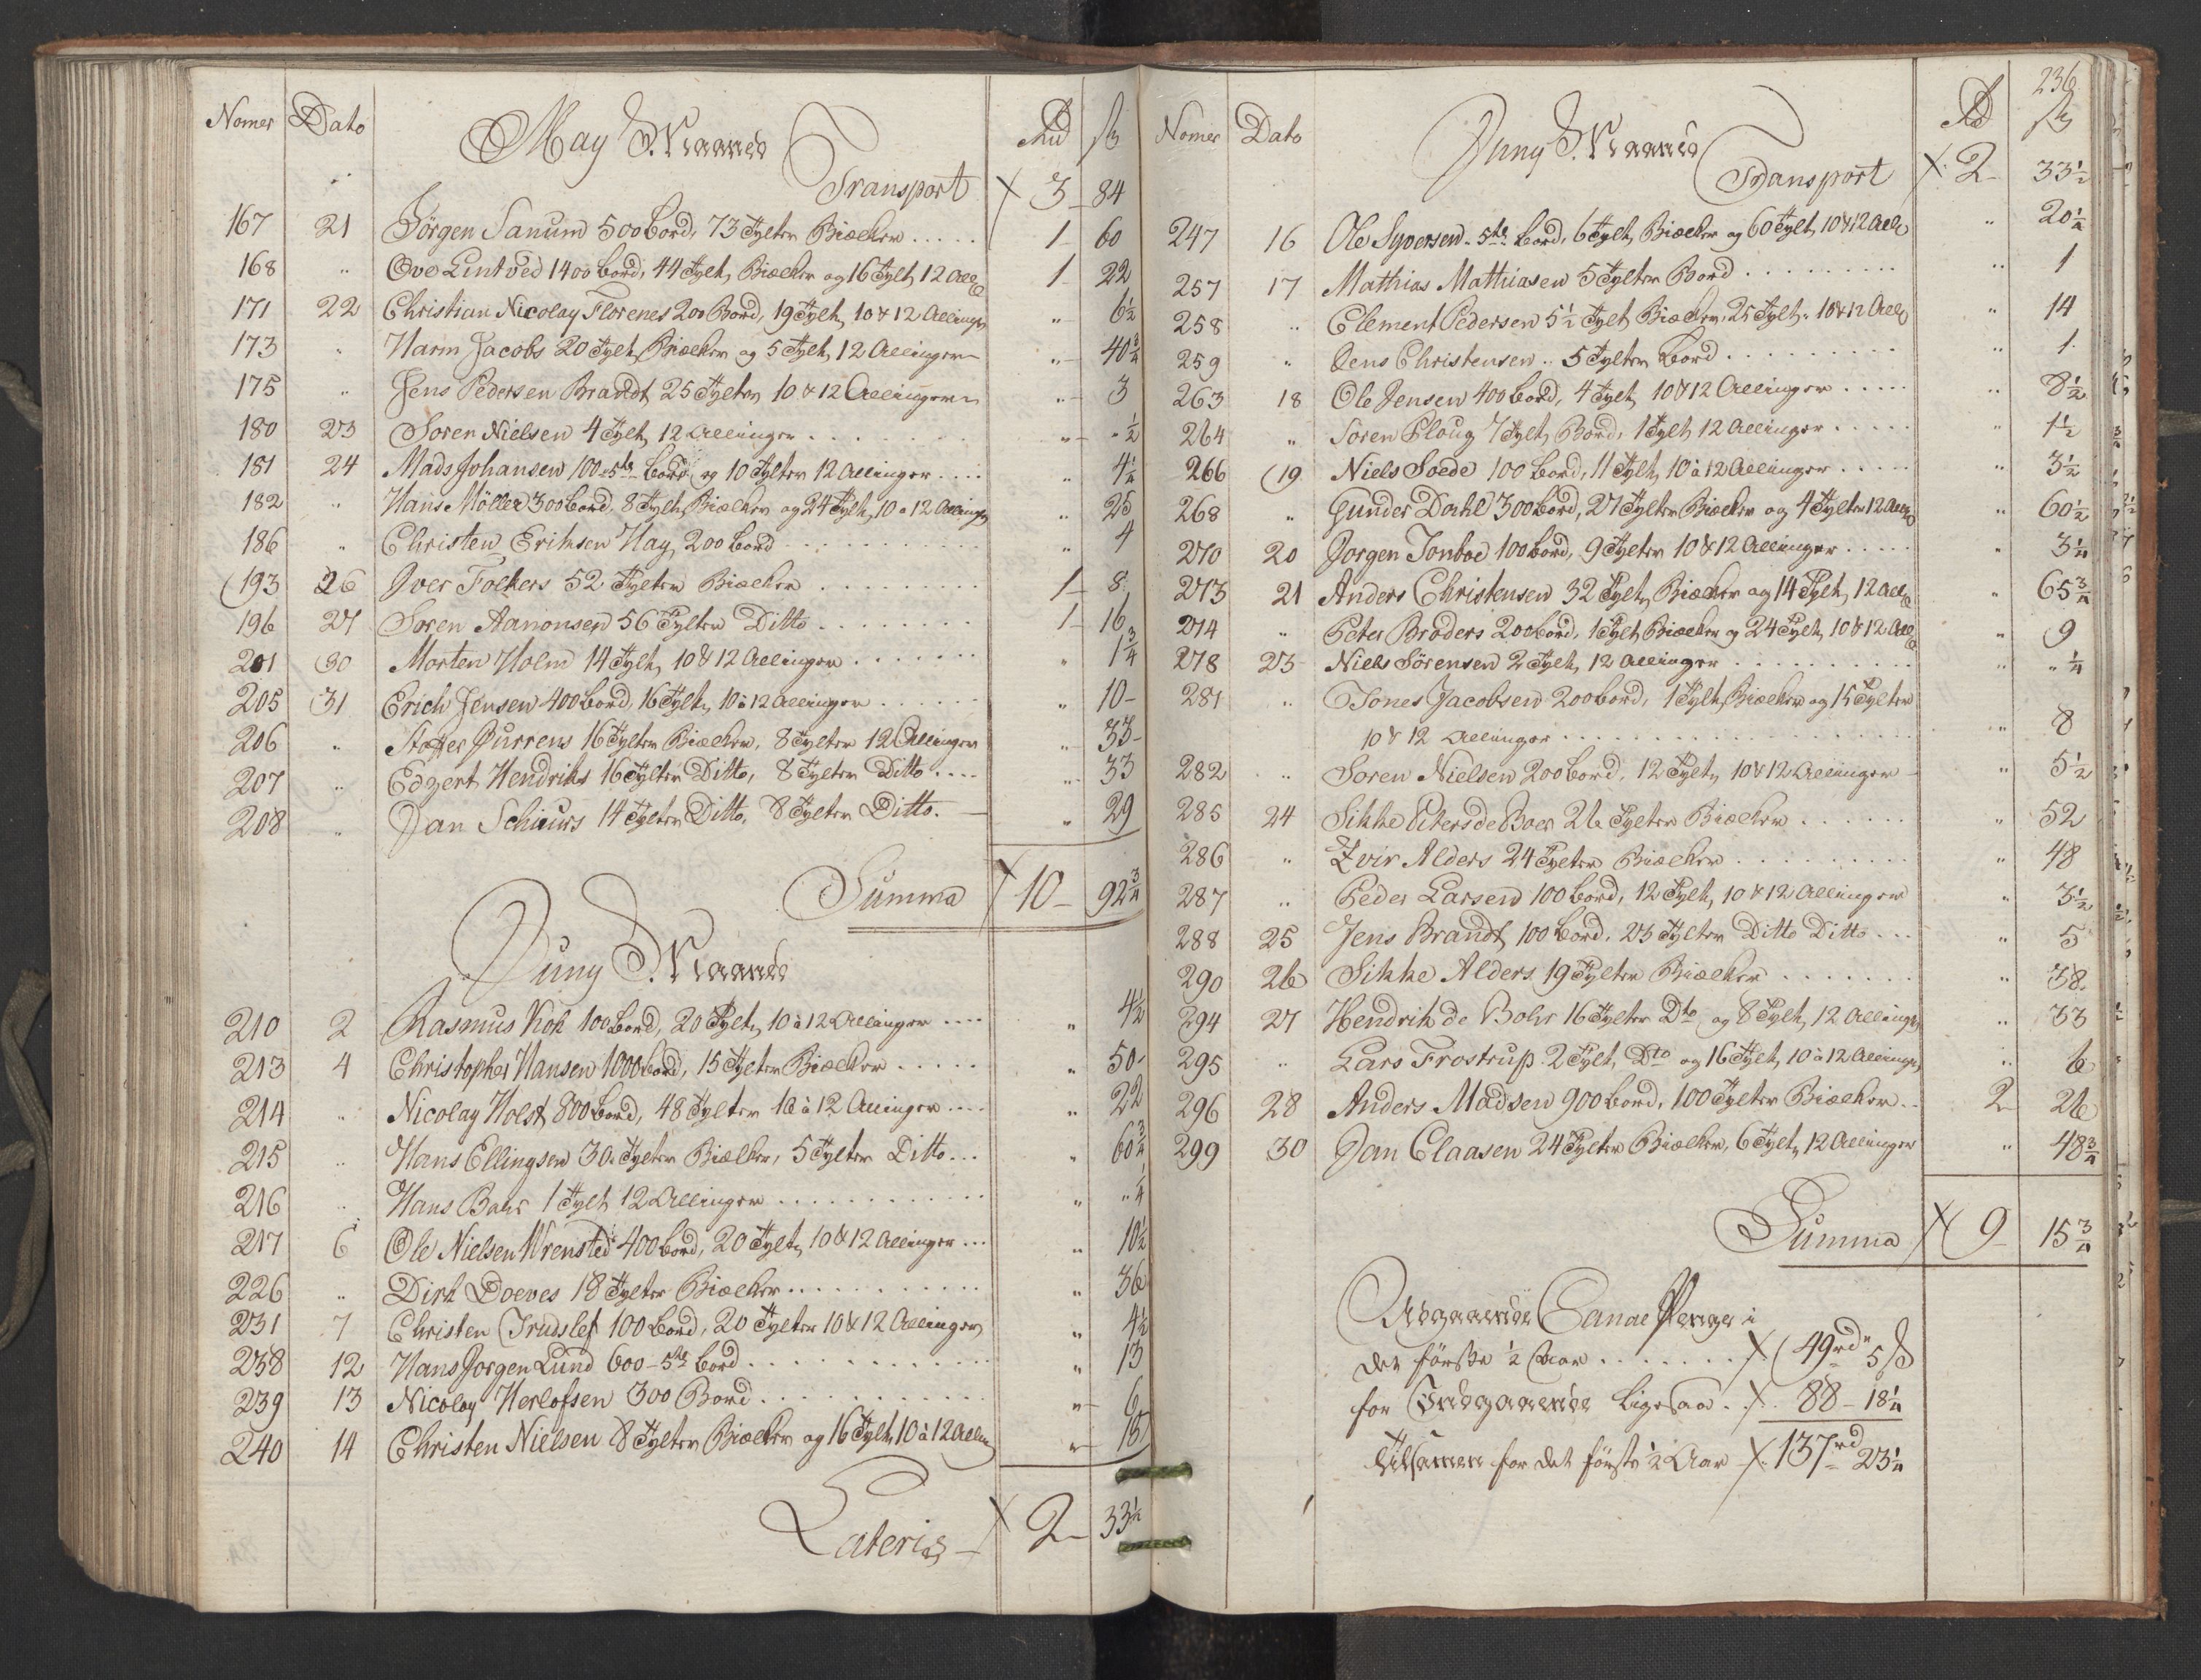 Nomer Dato May Maaned Rd ß
Transport 3 84
167 21 Jörgen Sanum 500 Bord, 73 Tylter Biælker ..... 1 60
168 " Ove Lintved 1400 bord, 44 Tylt, Biælker og 16 Tylt, 12 All 1 22
171 22 Christian Nicolay Florenes 200 Bord, 19 Tylt, 10 & 12 Allinger " 6½
173 " Harm Jacobs 20 Tylt, Biælker og 5 Tylt, 12 Allinger " 40¾
175 " Jens Pedersen Brandt 25 Tylter 10 & 12 Allinger " 3
180 23 Soren Nielsen 4 Tylt, 12 Allinger " " ½
181 24 Mads Johansen 100 - 5te bord og 10 Tylter 12 Allinger .... " 4¼
182 " Hans Möller 300 bord, 8 Tylt, Biælker og 24 Tylt, 10 a 12 Allinger " 25
186 " Christen Eriksen Hay 200 bord " 4
193 26 Iver Folkers 52 Tylter Biælker 1 8
196 27 Soren Aanonsen 56 Tylter Ditto 1 16
201 30 Morten Holm 14 Tylt, 10 & 12 Allinger " 1¾
205 31 Erich Jensen 400 bord, 16 Tylt, 10 à 12 Allinger " 10
206 " Staffer Jurrens 16 Tylter Biælker, 8 Tylter 12 Allinger " 33
207 " Edzert Hendriks 16 Tylter Ditto, 8 Tylter Ditto .... " 33
208 " Jan Schuurs 14 Tylter Ditto, 8 Tylter Ditto. " 29
Summa 10 92¾
Juny Maaned
210 2 Rasmus Kok 100 bord, 20 Tylt, 10 à 12 Allinger .... " 4½
213 4 Christopher Hansen 1000 bord, 15 Tylter Biælker ..... " 50
214 " Nicolay Holst 800 bord, 48 Tylter 10 à 12 Allinger .... " 22
215 " Hans Ellingsen 30 Tylter Biælker, 5 Tylter Ditto ... " 60¾
216 " Hans Bahr 1 Tylt 12 Allinger " " ¼
217 6 Ole Nielsen Wrensted 400 bord, 20 Tylt, 10 & 12 Allinger ... " 10½
226 " Dirk Doeves 18 Tylter Biælker " 36
231 7 Christen Trudslef 100 bord, 20 Tylter 10 & 12 Allinger " 4½
238 12 Hans Jorgen Lund 600 - 5te bord " 13
239 13 Nicolay Herlofsen 300 Bord " 6
240 14 Christen Nielsen 8 Tylter Biælker og 16 Tylt, 10 à 12 Alling " 18
Lateris 2 33½
236
Nomer Dato Juny Maaned Rd ß
Transport 2 33½
247 16 Ole Syversen 5te bord, 6 Tylt, Biælker og 60 Tylt, 10 & 12 All " 20¼
257 17 Mathias Mathiasen 5 Tylter Bord " 1
258 " Clement Pedersen 5½ Tylt Biælker, 25 Tylt, 10 & 12 All " 14
259 " Jens Christensen 5 Tylter bord " 1
263 18 Ole Jensen 400 bord, 4 Tylt, 10 & 12 Allinger ..... " 8½
264 " Soren Ploug 7 Tylt, Bord, 1 Tylt 12 Allinger ..... " 1½
266 19 Niels Soede 100 bord, 11 Tylt, 10 à 12 Allinger ..... " 3½
268 " Gunder Dahl 300 bord, 27 Tylter Biælker og 4 Tylter 12 All " 60½
270 20 Jorgen Tonboe 100 bord, 9 Tylter 10 & 12 Allinger ..... " 3¼
273 21 Anders Christensen 32 Tylt, Biælker og 14 Tylt, 12 All " 65¾
274 " Peter Broders 200 bord, 1 Tylt Biælker og 24 Tylt, 10 & 12 All " 9
278 23 Niels Sörensen 2 Tylt, 12 Allinger " " ¼
281 " Tönes Jacobsen 200 bord, 1 Tylt, Biælker og 15 Tylter
10 & 12 Allinger " 8
282 " Soren Nielsen 200 bord, 12 Tylt, 10 & 12 Allinger " 5½
285 24 Sikke Piters de Boer 26 Tylter Biælker " 52
286 " Zvir Alders 24 Tylter Biælker " 48
287 " Peder Larsen 100 bord, 12 Tylt, 10 & 12 Allinger " 3½
288 25 Jens Brandt 100 bord, 23 Tylter Ditto Ditto ... " 5
290 26 Sikke Alders 19 Tylter Biælker " 38
294 27 Hendrik de Bohr 16 Tylter Dto og 8 Tylt, 12 Allinger " 33
295 " Lars Frostrup 2 Tylt, Dto og 16 Tylt, 10 à 12 Allinger " 6
296 28 Anders Madsen 900 bord, 100 Tylter Biælker .. 2 26
299 30 Jan Claasen 24 Tylter Biælker, 6 Tylt, 12 Allinger " 48¾
Summa 9 15¾
Udgaaende Canal Penge i
det förste ½ Aar ....... 49 rd 5 ß
for Indgaaende ligesaa .. 88 - 18¼
tilsamen for det förste ½ Aar 137 rd 23¼